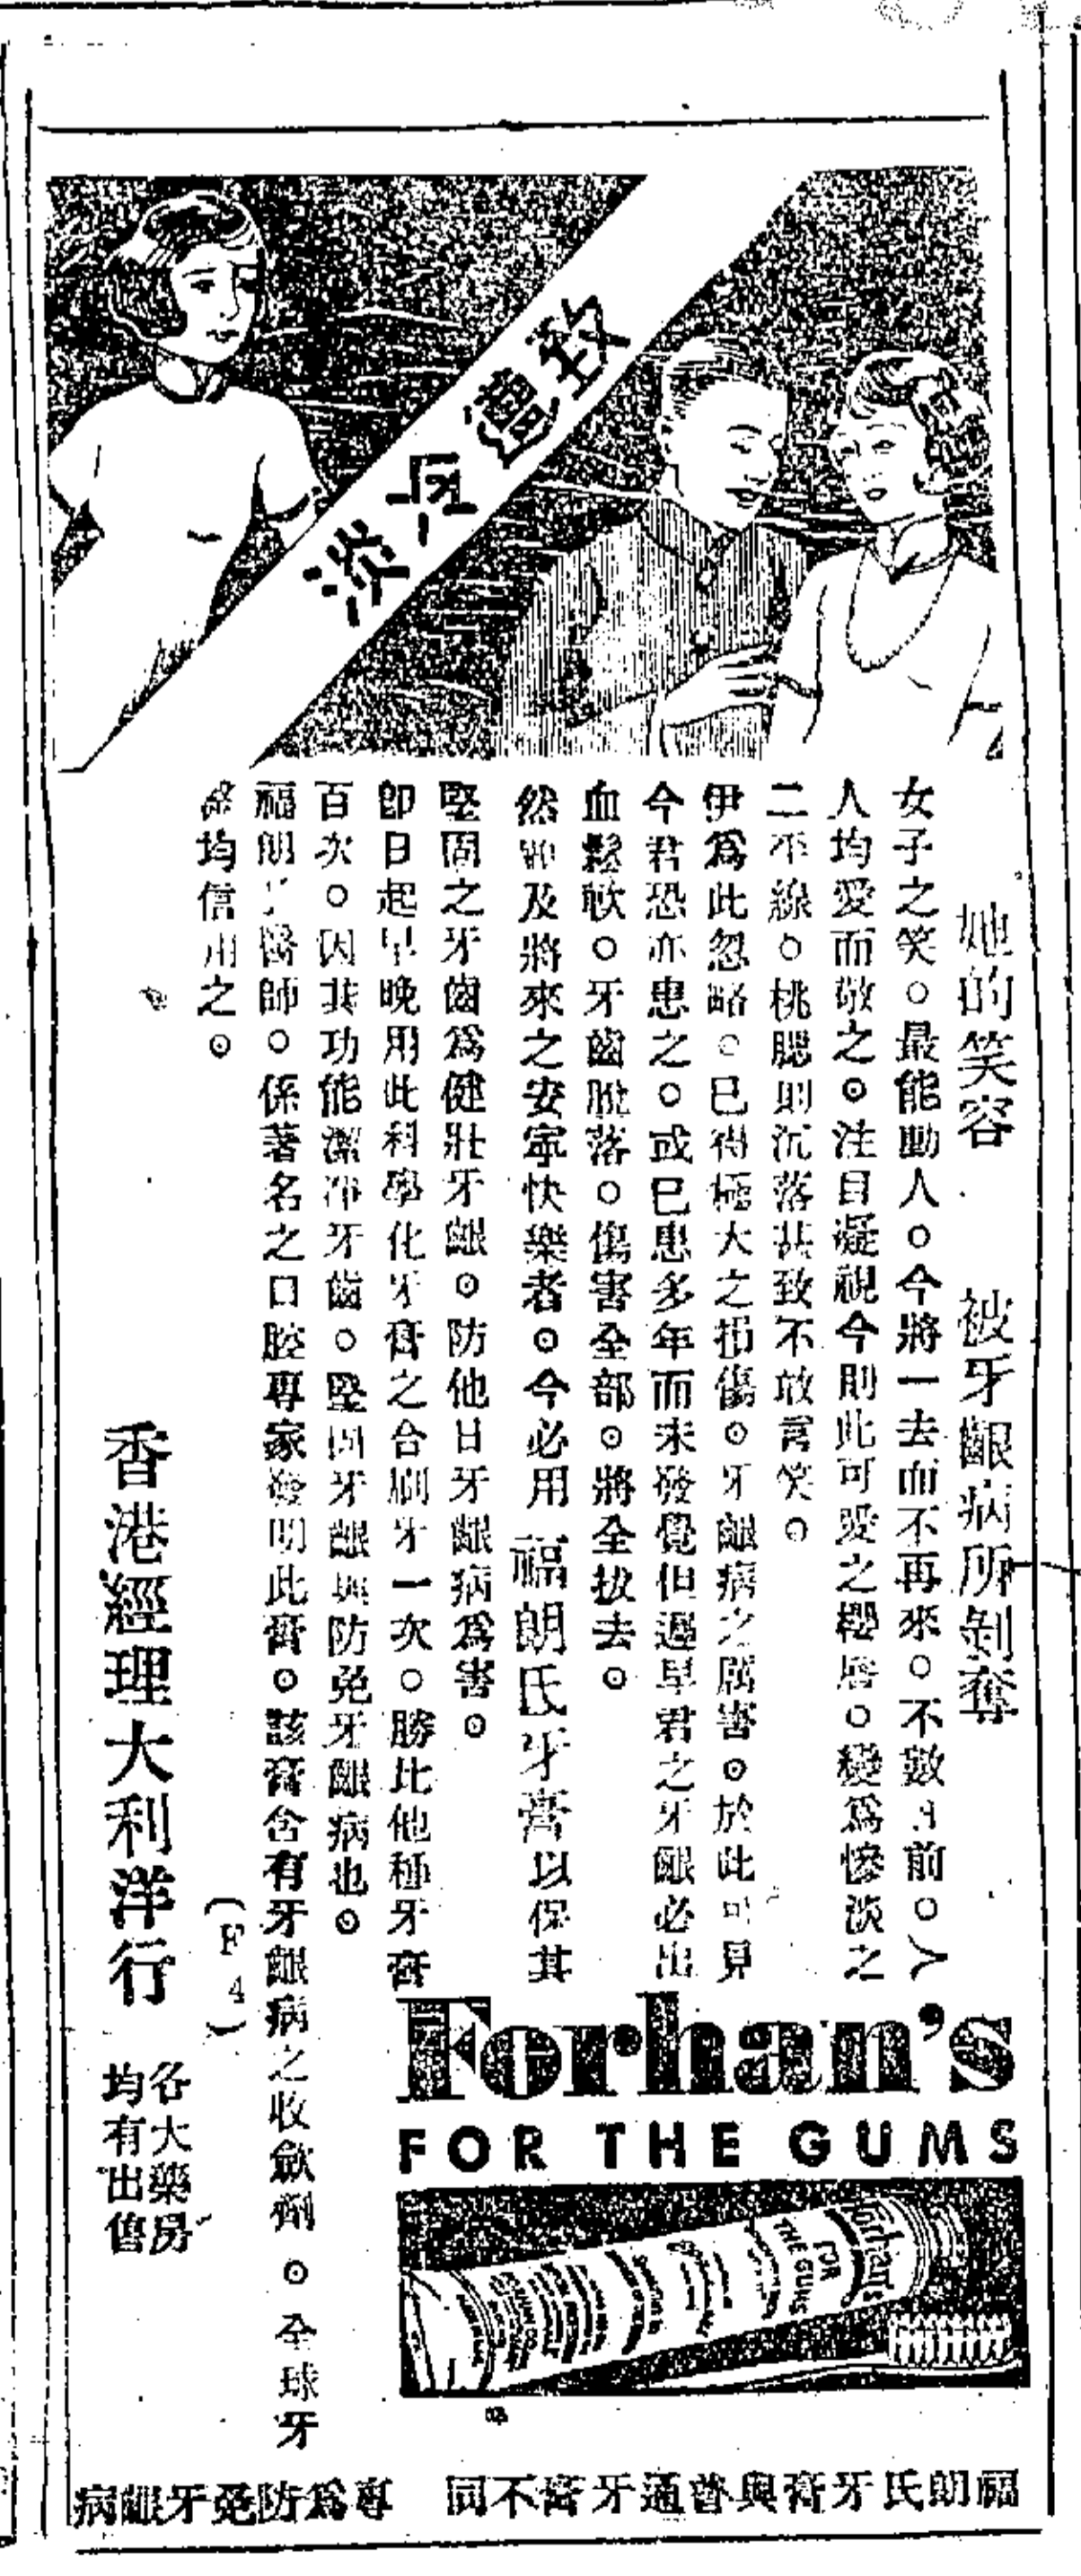 致遭冷淡
她的笑容 被牙齦病所剝奪
女子之笑。最能動人。今將一去而不再來。不數日前。人
人均愛而敬之。注目凝視今則此可愛之櫻唇。變為慘淡之
二不線。桃腮則沉落甚致不敢言笑。
伊為此忽略。已得極大之損傷。牙齦病之厲害。於此可見
今君恐亦患之。或已患多年而未發覺但遲早君之牙齦必出
血鬆軟。牙齒脫落。傷害全部。將全拔去。
然如及將來之安寧快樂者。今必用福朗氏牙膏以保其
堅固之牙齒為健壯牙齦。防他日牙齦病為害。
卽日起早晚用此科學化牙膏之合刷牙一次。勝比他種牙膏
百次。因其功能潔淨牙齒。堅固牙齦與防免牙齦病也。
福朗氏醫師。係著名之口腔專家發明此膏。該膏含有牙齦病之收斂劑。全球牙
醫均信用之。
(F4)
香港經理大利洋行
各大藥房
均有出售
Forhan's
FOR THE GUMS
Forhan's
FOR
THE GUMS
福朗氏牙膏與普通牙膏不同 專為防免牙齦病